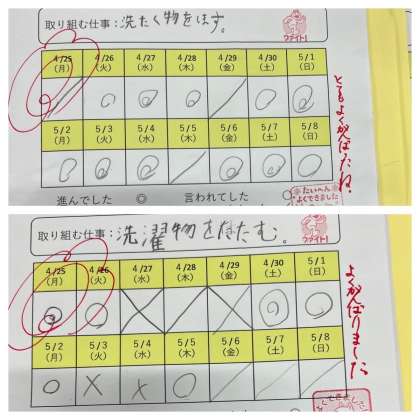 取り組む仕事：洗たく物をほす。
ファイト！
4/25 4/26 4/27 4/28 4/29 4/30 5/1
（月） （火） （水） （木） （金） （土） （日）
5/2 5/3 5/4 5/5 5/6 5/7 5/8
（月） （火） （水） （木） （金） （土） （日）
進んでした ◎ 言われてした ○
とてもよくがんばったね。
たいへん
よくできました
取り組む仕事：洗濯物をたたむ。
ファイト！
4/25 4/26 4/27 4/28 4/29 4/30 5/1
（月） （火） （水） （木） （金） （土） （日）
5/2 5/3 5/4 5/5 5/6 5/7 5/8
（月） （火） （水） （木） （金） （土） （日）
よくがんばりました